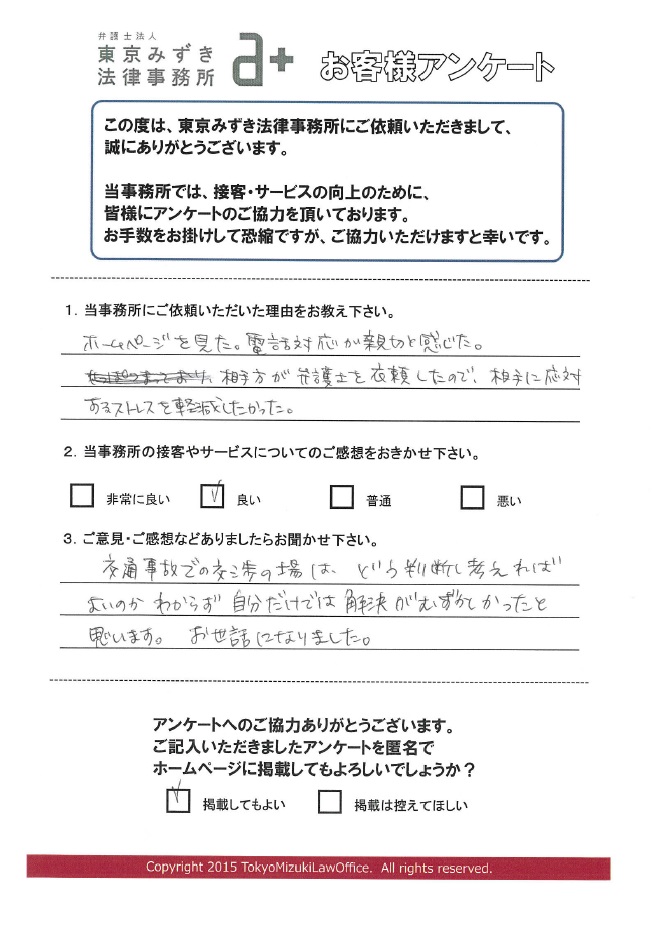 弁護士法人
東京みずき
法律事務所
a+
お客様アンケート
この度は、東京みずき法律事務所にご依頼いただきまして、
誠にありがとうございます。
当事務所では、接客・サービスの向上のために、
皆様にアンケートのご協力を頂いております。
お手数をお掛けして恐縮ですが、ご協力いただけますと幸いです。
1. 当事務所にご依頼いただいた理由をお教え下さい。
ホームページを見た。電話対応が親切と感じた。
相手方が弁護士を依頼したので、相手に応対
あるストレスを軽減したかった。
2. 当事務所の接客やサービスについてのご感想をおきかせ下さい。
非常に良い 良い 普通 悪い
3. ご意見・ご感想などありましたらお聞かせ下さい。
交通事故での交渉の場は、どう判断し考えれば
よいのか わからず 自分だけでは 解決がむずかしかったと
思います。 お世話になりました。
アンケートへのご協力ありがとうございます。
ご記入いただきましたアンケートを匿名で
ホームページに掲載してもよろしいでしょうか？
掲載してもよい 掲載は控えてほしい
Copyright 2015 TokyoMizukiLawOffice. All rights reserved.